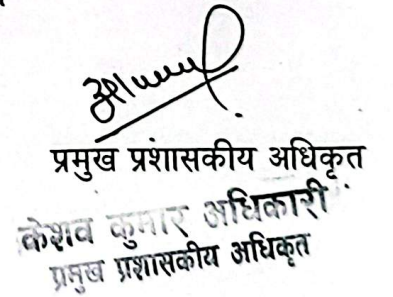 प्रमुख प्रशासकीय अधिकृत
केशव कुमार अधिकारी
प्रमुख प्रशासकीय अधिकृत